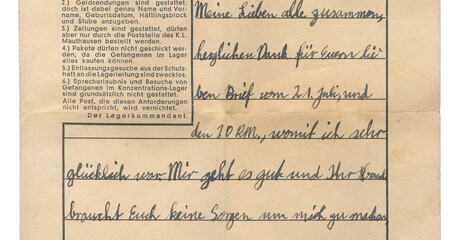 2.) Geldsendungen sind gestattet,
doch ist dabei genau Name und Vor-
name, Geburtsdatum, Häftlingsblock
und Stube anzugeben.
3.) Zeitungen sind gestattet, dürfen
aber nur durch die Poststelle des K. L.
Mauthausen bestellt werden.
4.) Pakete dürfen nicht geschickt wer-
den, da die Gefangenen im Lager
alles kaufen können.
5.) Entlassungsgesuche aus der Schutz-
haft an die Lagerleitung sind zwecklos.
6.) Sprecherlaubnis und Besuche von
Gefangenen im Konzentrations-Lager
sind grundsätzlich nicht gestattet.
Alle Post, die diesen Anforderungen
nicht entspricht, wird vernichtet.
Der Lagerkommandant.
Meine Lieben alle zusammen,
herzlichen Dank für Euern lie
ben Brief vom 21. Juli, und
den 10 RM., womit ich sehr
glücklich war. Mir geht es gut und Ihr
braucht Euch keine Sorgen um mich zu machen,